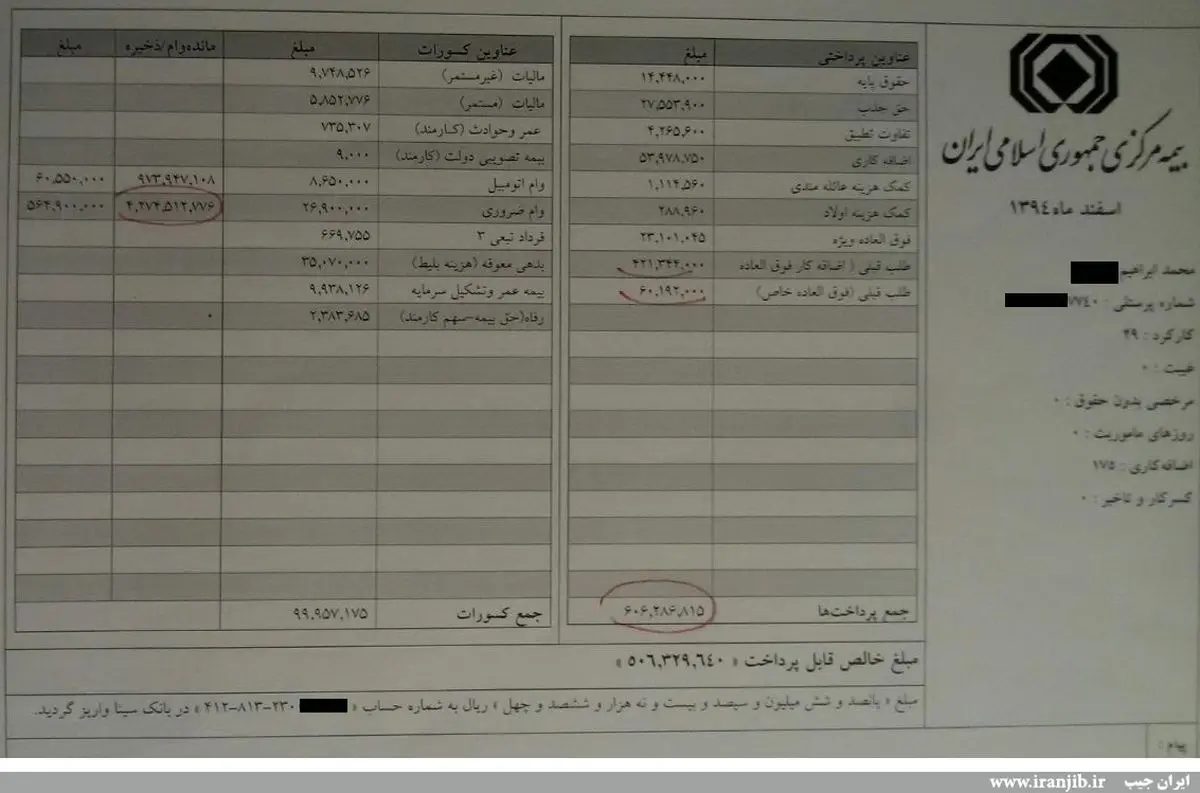 بیمه مرکزی جمهوری اسلامی ایران
اسفند ماه ۱۳۹۴
محمد ابراهیم
شماره پرسنلی : ۷۷۴۰
کارکرد : ۲۹
غیبت : ۰
مرخصی بدون حقوق : ۰
روزهای ماموریت : ۰
اضافه‌کاری : ۱۷۵
کسرکار و تاخیر : ۰
عناوین پرداختی مبلغ
حقوق پایه ۱۴,۴۴۸,۰۰۰
حق جذب ۲۷,۵۵۳,۹۰۰
تفاوت تطبیق ۴,۲۶۵,۶۰۰
اضافه کاری ۵۳,۹۷۸,۷۵۰
کمک هزینه عائله مندی ۱,۱۱۴,۵۶۰
کمک هزینه اولاد ۲۸۸,۹۶۰
فوق العاده ویژه ۲۳,۱۰۱,۰۴۵
طلب قبلی ( اضافه کار فوق العاده ۴۲۱,۳۴۴,۰۰۰
طلب قبلی (فوق العاده خاص) ۶۰,۱۹۲,۰۰۰
جمع پرداخت‌ها ۶۰۶,۲۸۶,۸۱۵
عناوین کسورات مبلغ مانده‌وام/ذخیره مبلغ
مالیات (غیرمستمر) ۹,۷۴۸,۵۲۶
مالیات (مستمر) ۵,۸۵۲,۷۷۶
عمر وحوادث (کارمند) ۷۳۵,۳۰۷
بیمه تصویبی دولت (کارمند) ۹,۰۰۰
وام اتومبیل ۸,۶۵۰,۰۰۰ ۹۷۳,۹۴۷,۱۰۸ ۶۰,۵۵۰,۰۰۰
وام ضروری ۲۶,۹۰۰,۰۰۰ ۴,۲۷۴,۵۱۲,۷۷۶ ۵۶۴,۹۰۰,۰۰۰
قرداد تبعی ۳ ۶۶۹,۷۵۵
بدهی معوقه (هزینه بلیط) ۳۵,۰۷۰,۰۰۰
بیمه عمر وتشکیل سرمایه ۹,۹۳۸,۱۲۶
رفاه(حق بیمه-سهم کارمند) ۲,۳۸۳,۶۸۵ ۰
جمع کسورات ۹۹,۹۵۷,۱۷۵
مبلغ خالص قابل پرداخت « ۵۰۶,۳۲۹,۶۴۰ »
مبلغ « پانصد و شش میلیون و سیصد و بیست و نه هزار و ششصد و چهل » ریال به شماره حساب « ۴۱۲-۸۱۳-۲۳۰ » در بانک سینا واریز گردید.
پیام :
ایران جیب www.iranjib.ir